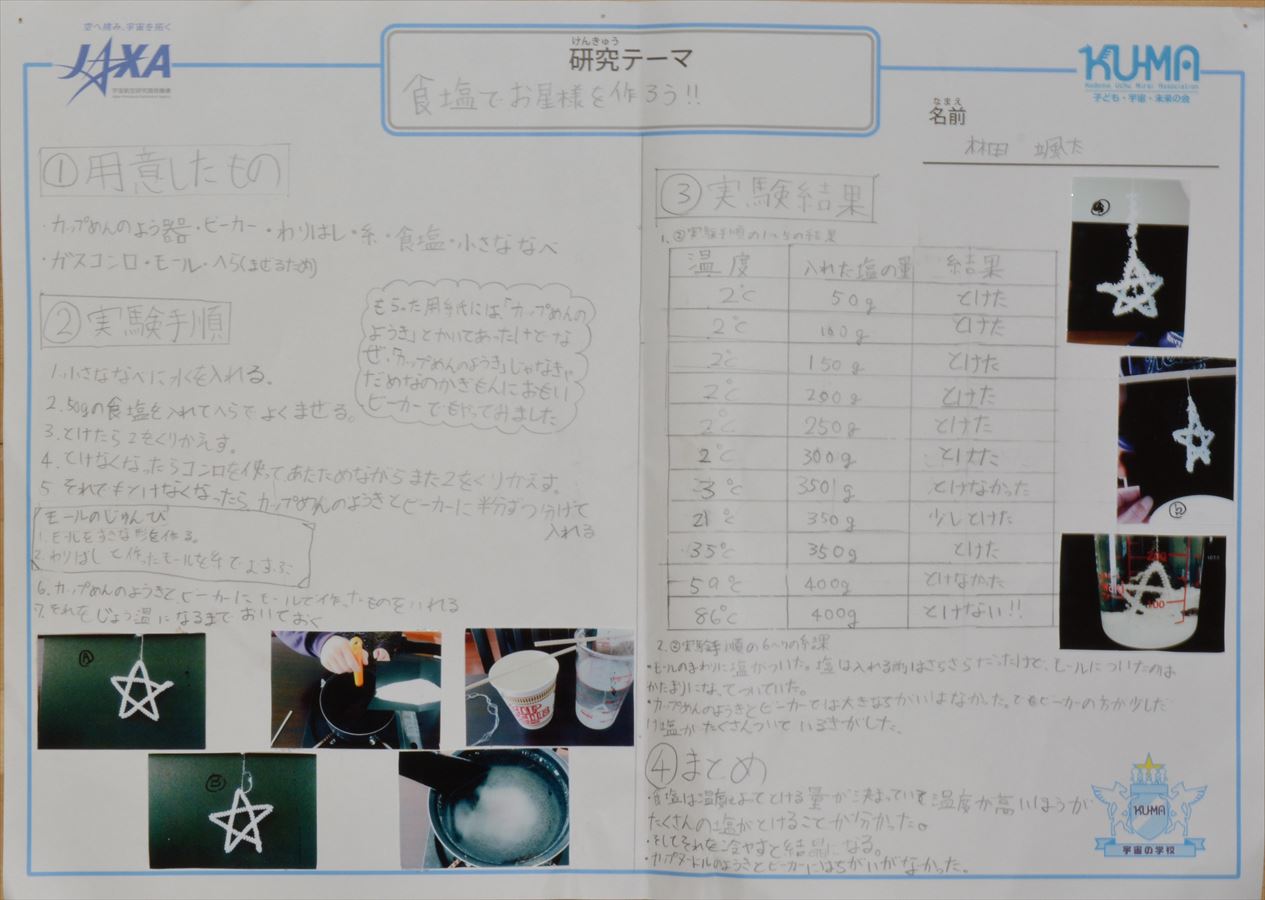 空へ挑み、宇宙を拓く
JAXA
宇宙航空研究開発機構
けんきゅう
研究テーマ
食塩でお星様を作ろう!!
KU-MA
子ども・宇宙・未来の会
なまえ
名前
林田 颯太
①用意したもの
・カップめんのよう器・ビーカー・わりはし・糸・食塩・小さななべ
・ガスコンロ・モール・へら(まぜるため)
もらった用紙には「カップめんの
ようき」とかいてあったけどな
ぜ「カップめんのようき」じゃなきゃ
だめなのかぎもんにおもい
ビーカーでもやってみました
②実験手順
1.小さななべに水を入れる。
2.50gの食塩を入れてへらでよくまぜる。
3.とけたら2をくりかえす。
4.とけなくなったらコンロを使ってあたためながらまた2をくりかえす。
5.それでもとけなくなったらカップめんのようきとビーカーに半分ずつ分けて
入れる
モールのじゅんび
1.モールを小さな形を作る。
2.わりばしと作ったモールを糸でよすぶ
6.カップめんのようきとビーカーにモールで作ったものをいれる
7.それをじょう温になるまでおいておく
A
B
③実験結果
1.②実験手順の1~5の結果
温度 入れた塩の量 結果
2℃ 50g とけた
2℃ 100g とけた
2℃ 150g とけた
2℃ 200g とけた
2℃ 250g とけた
2℃ 300g とけた
3℃ 350g とけなかった
21℃ 350g 少しとけた
35℃ 350g とけた
59℃ 400g とけなかった
86℃ 400g とけない!!
2.②実験手順の6~7の結果
・モールのまわりに塩がついた。塩は入れる前はさらさらだったけど、モールについたのは
かたまりになってついていた。
・カップめんのようきとビーカーでは大きなちがいはなかった。でもビーカーの方が少しだ
け塩がたくさんついているきがした。
④まとめ
・食塩は温度によってとける量が決まっていて温度が高いほうが
たくさんの塩がとけることが分かった。
・そしてそれを冷やすと結晶になる。
・カップヌードルのようきとビーカーにはちがいがなかった。
KU-MA
宇宙の学校